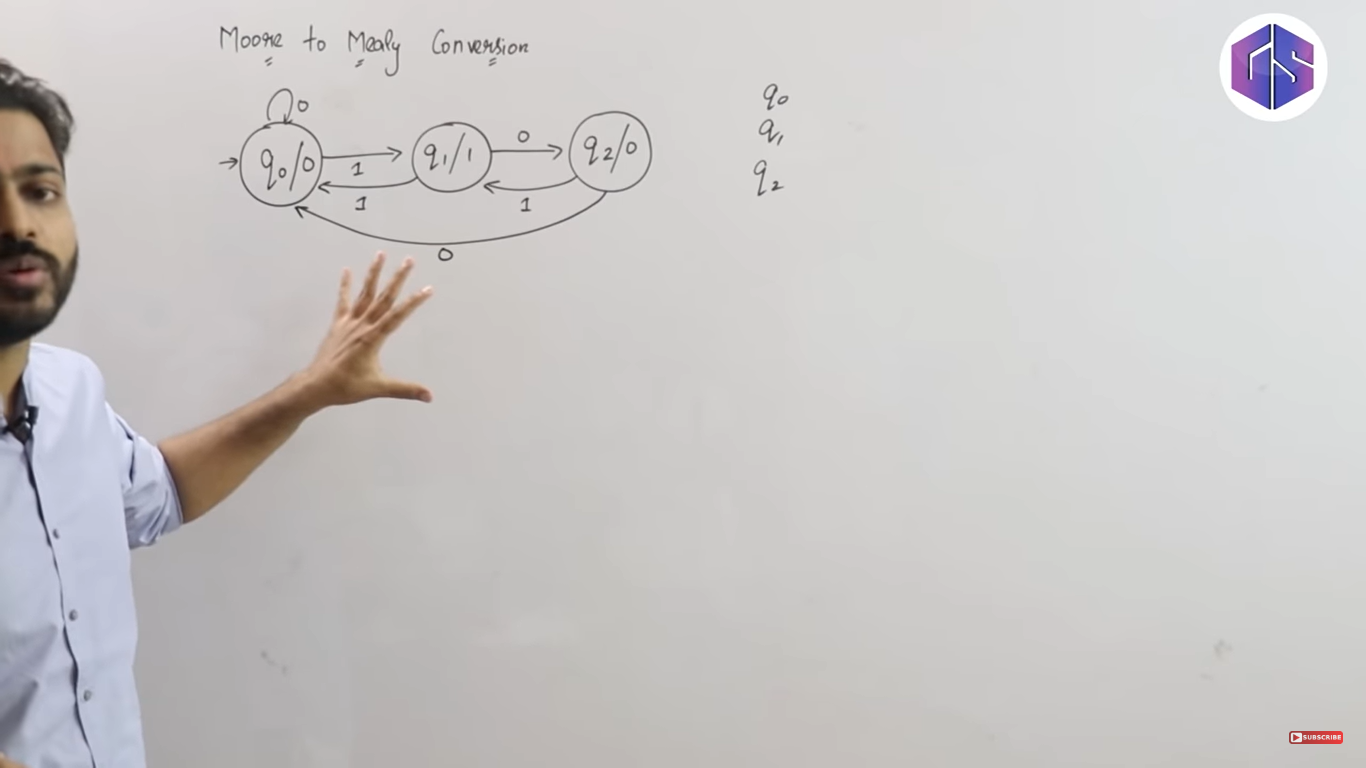 Moore to Mealy Conversion
0
q0/0
1
1
q1/1
0
1
q2/0
0
q0
q1
q2
GS
SUBSCRIBE